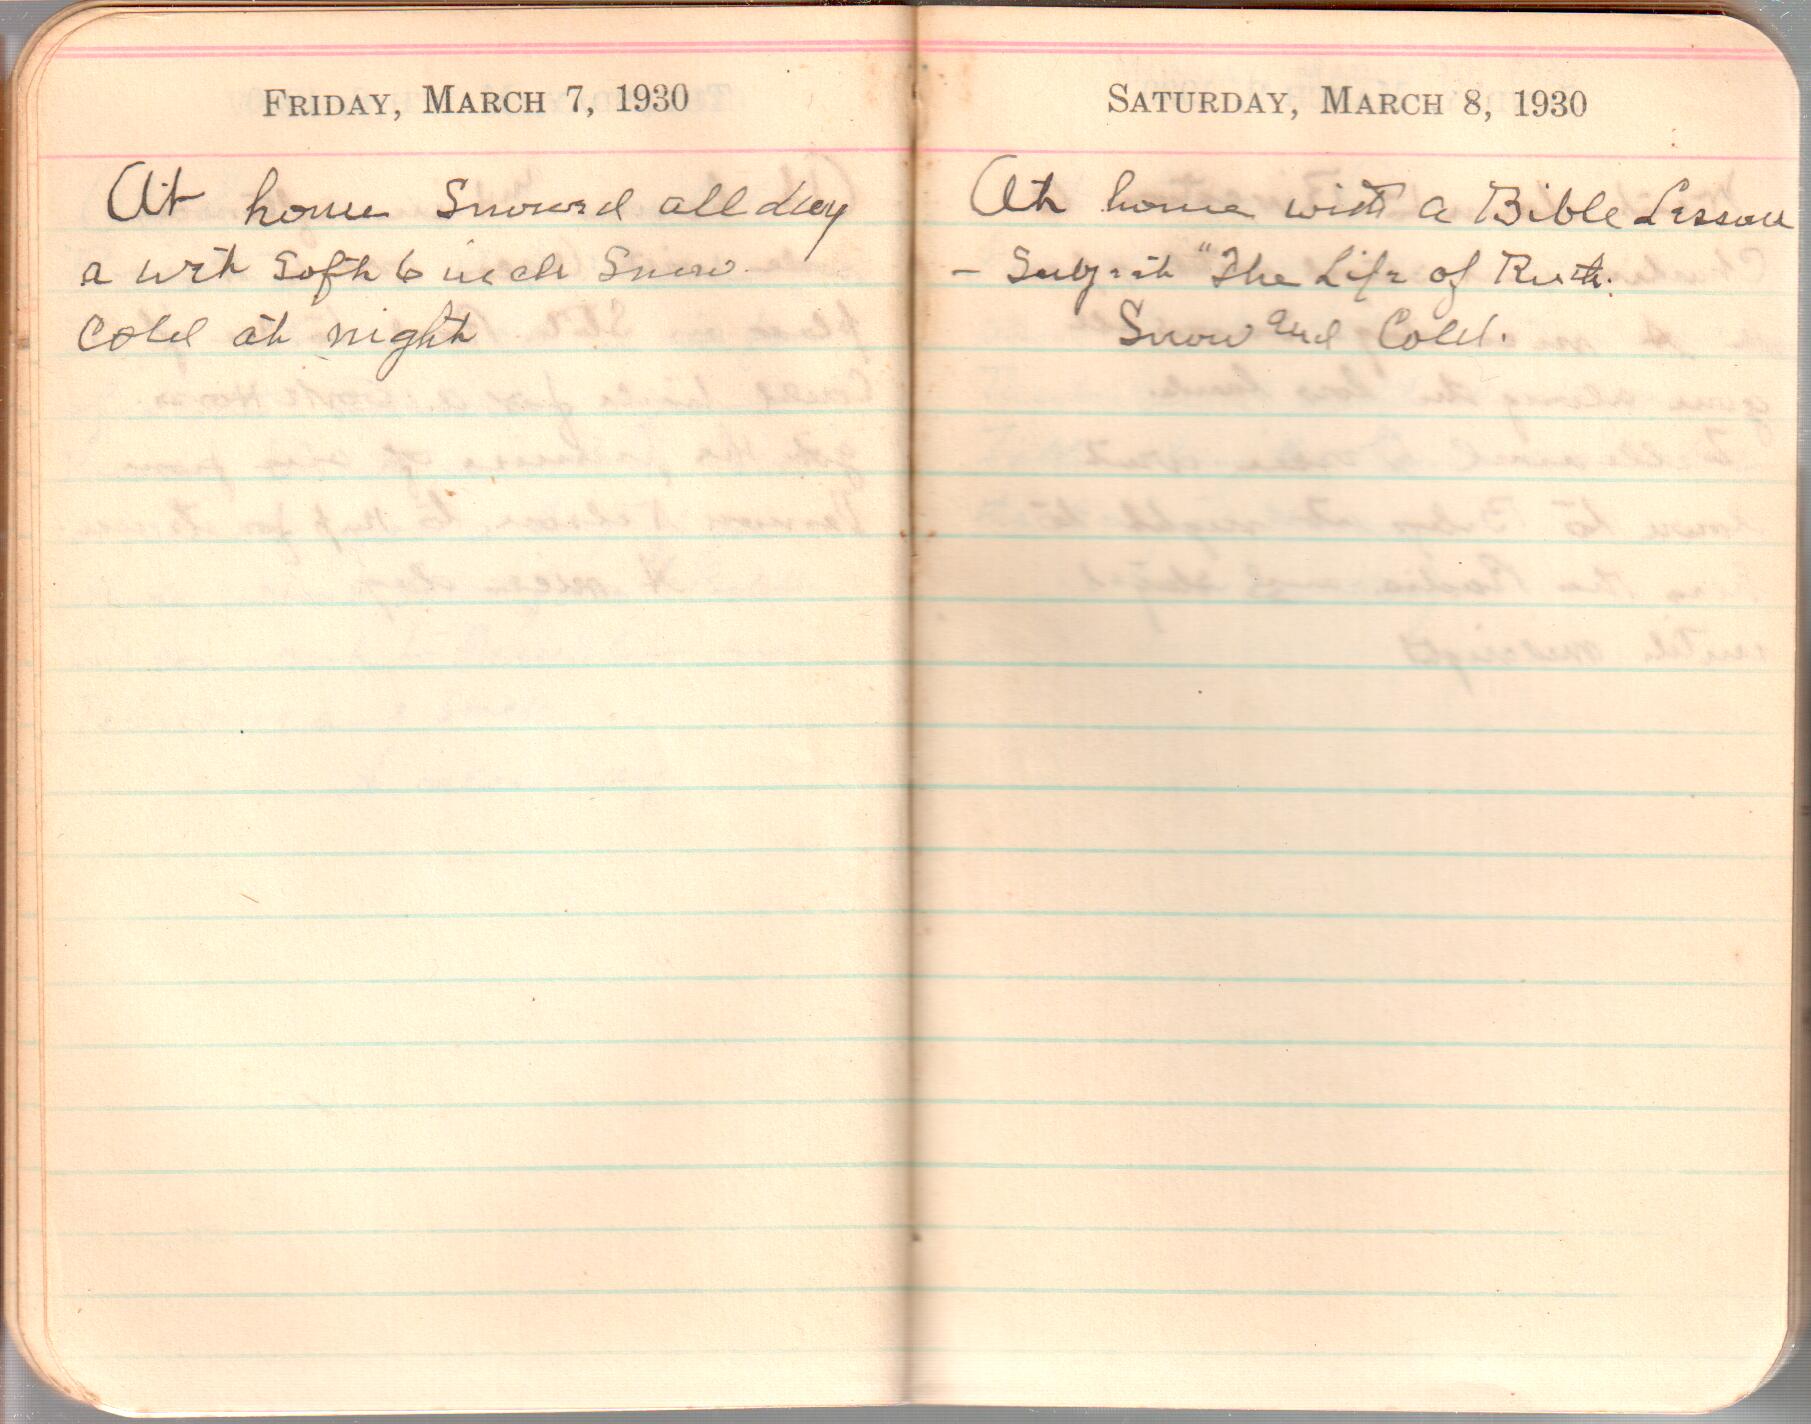 FRIDAY, MARCH 7, 1930
At home Snowed all day
a wet soft 6 inch Snow.
Cold at night
SATURDAY, MARCH 8, 1930
At home with a Bible Lesson
- Subject "The Life of Ruth.
Snow and Cold.